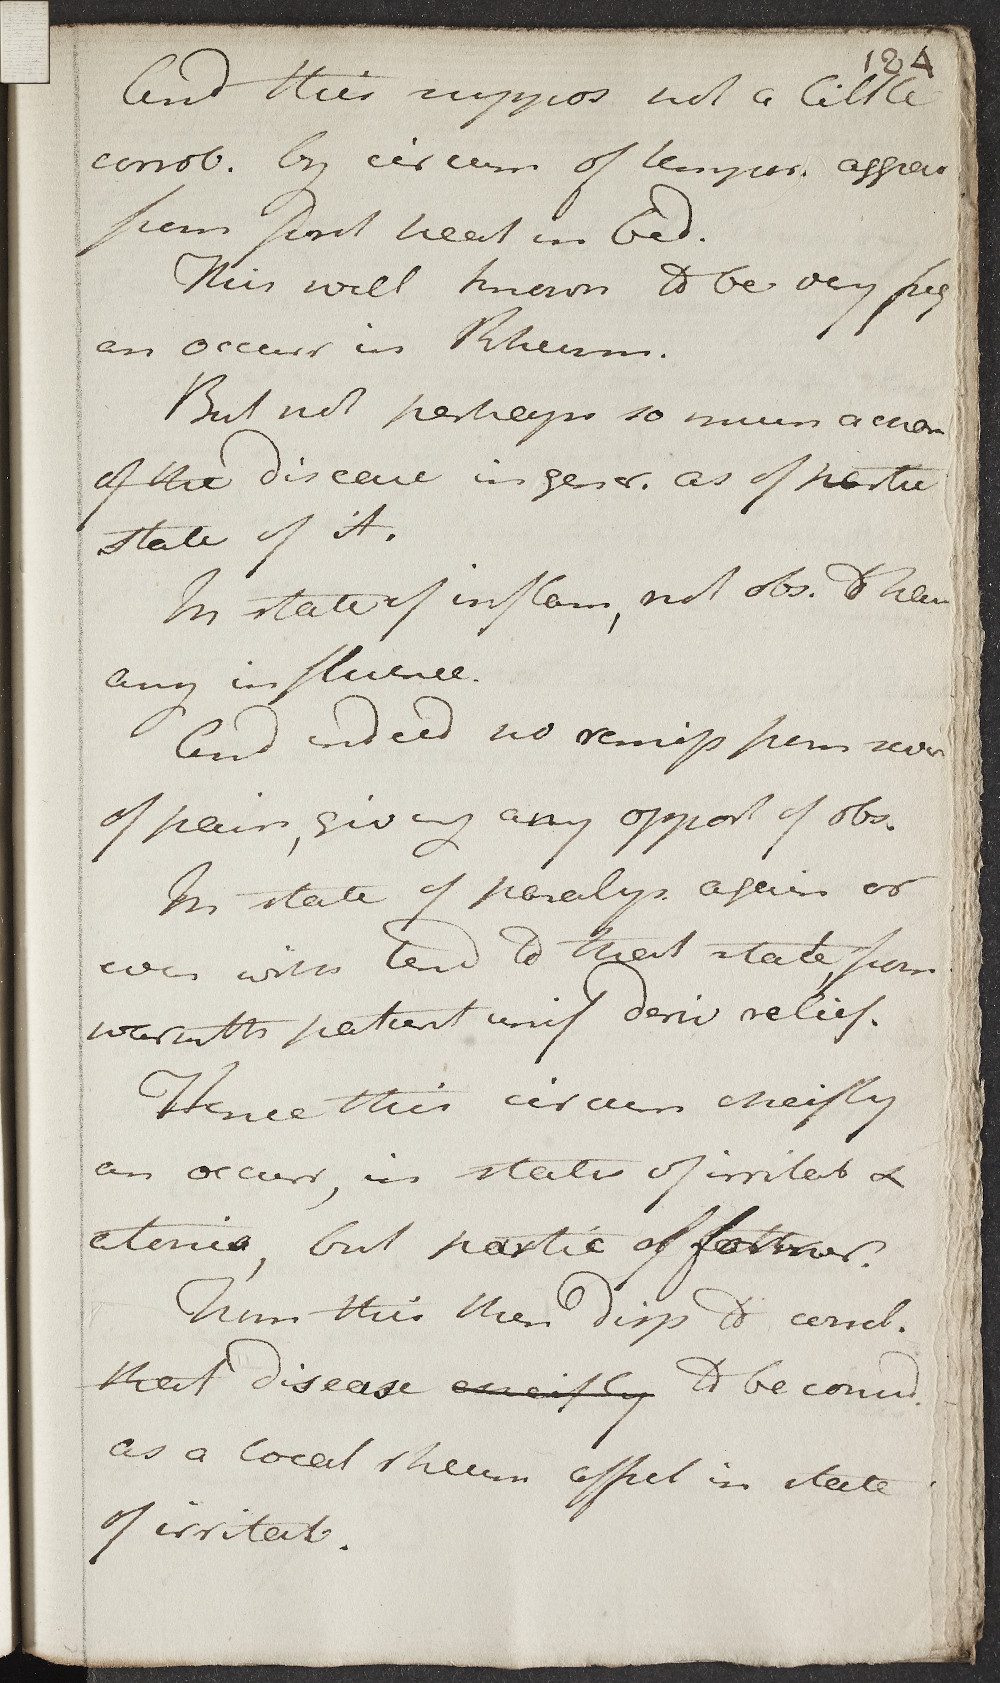 184
And this suppos not a little
corrob. by circum of tempor. aggrav
from first heat in bed.
This well known to be very freq
an occurr in Rheum.
But not perhaps so much a char
of the disease in gener. as of partic
state of it.
In state of inflam, not obs. to have
any influence.
And indeed no remiss from sever
of pain, giving any opport of obs.
In state of paralys. again or
even with tend to that state, from
warmth patient unif deriv relief.
Hence this circum cheifly
an occurr, in states of irritat &
atonia, but partic of former.
From this then disp to concl.
that disease cheifly to be consid.
as a local rheum affect in state
of irritat.